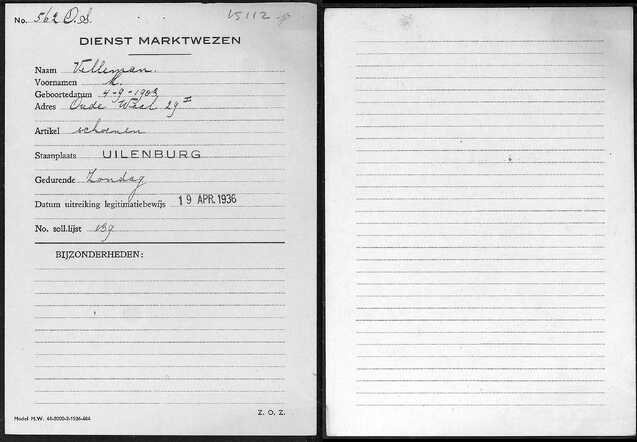 No. 562 O.S. V5112
DIENST MARKTWEZEN
Naam Velleman.
Voornamen M.
Geboortedatum 4-9-1903
Adres Oude Waal 29 II
Artikel schoenen
Staanplaats UILENBURG
Gedurende Zondag
Datum uitreiking legitimatiebewijs 19 APR. 1936
No. soll.lijst 139
BIJZONDERHEDEN:
Model M.W. 44-2000-3-1936-684
Z. O. Z.